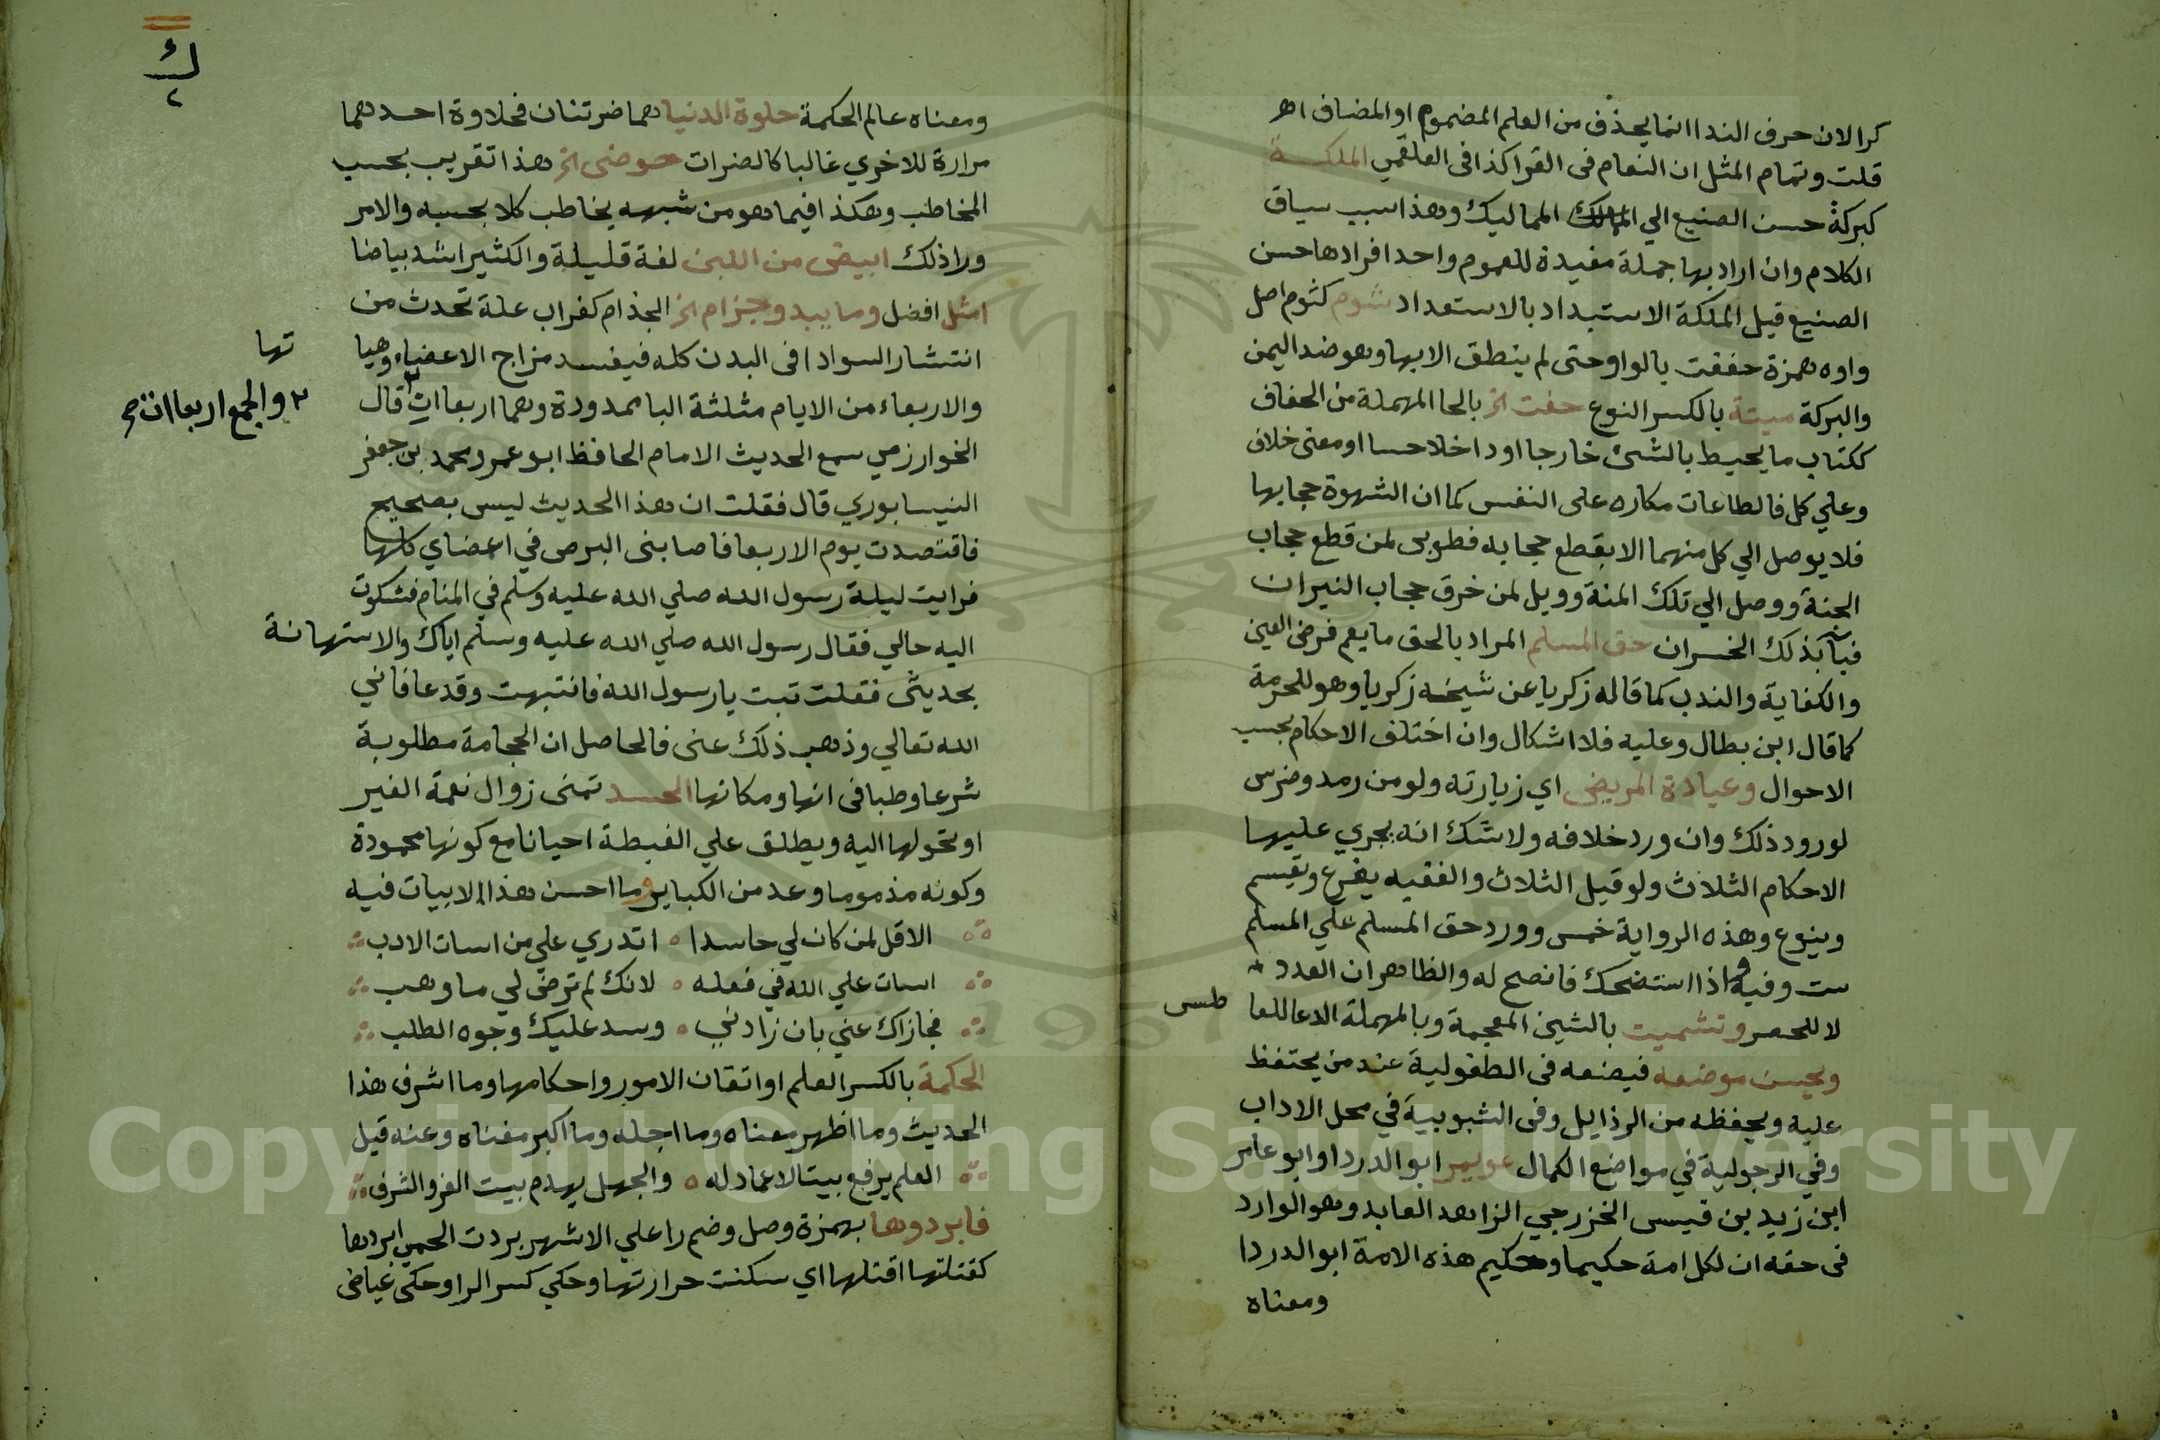 كرا لان حرف الندا انما يحذف من العلم المضموم او المضاف اهر
قلت وتمام المثل ان النعام فى القرا كذا فى العلقمي الملكة
كبركة حسن الصنيع الي المماليك وهذا سبب سياق
الكلام وان اراد بها جملة مفيدة للعموم واحد افرادها حسن
الصنيع قيل الملكة الاستبداد بالاستعداد شوم كثوم اصل
واوه همزة حففت بالواو حتى لم ينطق الا بها وهو ضد اليمن
والبركة ميتة بالكسر النوع حفت الخ بالحا المهملة من الحفاف
ككتاب ما يحيط بالشئ خارجا او داخلا حسا او معنى خلاف
وعلي كل فالطاعات مكاره على النفس كما ان الشهوة حجابها
فلا يوصل الي كل منهما الا بقطع حجابه فطوبى لمن قطع حجاب
الجنة ووصل الي تلك المنة وويل لمن خرق حجاب النيران
فبان بذلك الخسران حق المسلم المراد بالحق ما يعم فرض العين
والكفاية والندب كما قاله زكريا عن شيخه زكريا وهو للحرمة
كما قال ابن بطال وعليه فلا اشكال وان اختلف الاحكام بحسب
الاحوال وعيادة المريض اي زيارته ولو من رمد وضرس
لورود ذلك وان ورد خلافه ولا شك انه يجري عليها
الاحكام الثلاث ولو قيل الثلاث والفقيه يفرع ويقسم
وينوع وهذه الرواية خمس وورد حق المسلم علي المسلم
ست وفيه واذا استضحك فانصح له والظاهر ان العدد
لا للحصر وتشميت بالشين المعجمة وبالمهملة الدعا للعا طس
ويحسن موضعه فيضعه فى الطفولية عند من يحتفظ
عليه ويحفظه من الرذايل وفى الشبوبية في محل الاداب
وفي الرجولية في مواضع الكمال عويمر ابو الدردا وابو عامر
ابن زيد بن قيس الخزرجي الزاهد العابد وهو الوارد
فى حقه ان لكل امة حكيما وحكيم هذه الامة ابو الدردا
ومعناه
ك
٢
ومعناه عالم الحكمة حلوة الدنيا هما ضرتنان فحلاوة احدهما
مرارة للاخري غالبا كالضرات حوضى الخ هذا تقريب بحسب
المخاطب وهكذا فيما هو من شبهه يخاطب كلا بحسبه والامر
ورا ذلك ابيض من اللبن لغة قليلة والكثير اشد بياضا
امثل افضل وما يبدو جزام الخ الجذام كغراب علة تحدث من
انتشار السوادا فى البدن كله فيفسد مزاج الاعضاء وهيا
تها
والاربعاء من الايام مثلثة البا ممدودة وهما اربعاات قال
٢ والجمع اربعاات صح
الخوارزمي سمع الحديث الامام الحافظ ابو عمرو محمد بن جعفر
النيسابوري قال فقلت ان هذا الحديث ليس بصحيح
فاقتصدت يوم الاربعا فاصابنى البرص في اعضاي كلها
فرايت ليلة رسول الله صلي الله عليه وسلم في المنام فشكوت
اليه حالي فقال رسول الله صلي الله عليه وسلم اياك والاستهانة
بحديثى فقلت تبت يا رسول الله فانتبهت وقد عافاني
الله تعالي وذهب ذلك عنى فالحاصل ان الحجامة مطلوبة
شرعا وطبا فى انها ومكانها الحسد تمنى زوال نعمة الغير
او تحولها اليه ويطلق علي الغبطة احيانا مع كونها محمودة
وكونه مذموما وعد من الكباير وما احسن هذا الابيات فيه
الا قل لمن كان لي حاسدا اتدري علي من اسات الادب
اسات علي الله في فعله لانك لم ترض لي ما وهب
فجازاك عني بان زادني وسد عليك وجوه الطلب
الحكمة بالكسر العلم او اتقان الامور واحكامها وما اشرف هذا
الحديث وما اظهر معناه وما اجله وما اكبر مغناه وعنه قيل
العلم يرفع بيتا لا عماد له والجهل يهدم بيت العز والشرف
فابردوها بهمزة وصل وضم را علي الاشهر بردت الحمي ابردها
كقتلتها اقتلها اي سكنت حرارتها وحكي كسر الرا وحكى عياض
Copyright © King Saud University
1957